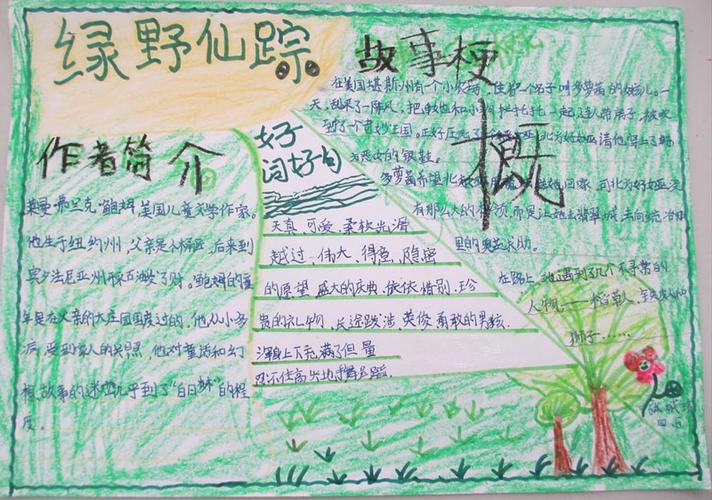 绿野仙踪
故事梗概
在美国堪斯州有一个小农场,住那个名子叫多萝茜的女孩儿。一
天,刮来了一阵风,把她和小狗托托一起,连人带房子,被吹
到了一个奇妙王国。正好压死了
的银鞋。
多萝茜希望北方
有那么大的本领,而是让她去翡翠城,去向统治那
里的奥兹求助。
在路上,她遇到了几个不寻常的
人物,——稻草人,铁皮人和
狮子……
作者简介
莱曼·弗兰克·鲍姆,美国儿童文学作家。
他生于纽约州,父亲是人桶匠,后来到
宾夕法尼亚州
发了财。鲍姆的童
年是在父亲的大庄园里度过的,他从小多
病,受到家人的关照,他对童话和幻
想故事的迷恋几乎到了“白日梦”的程
度。
好词好句
天真、可爱、柔软光滑
越过、伟大、得意、隐密
的愿望、盛大的庆典、依依惜别、珍
贵的礼物、长途跋涉、英俊勇敢的男孩
浑身上下充满了但量
忍不住高兴地手舞足蹈